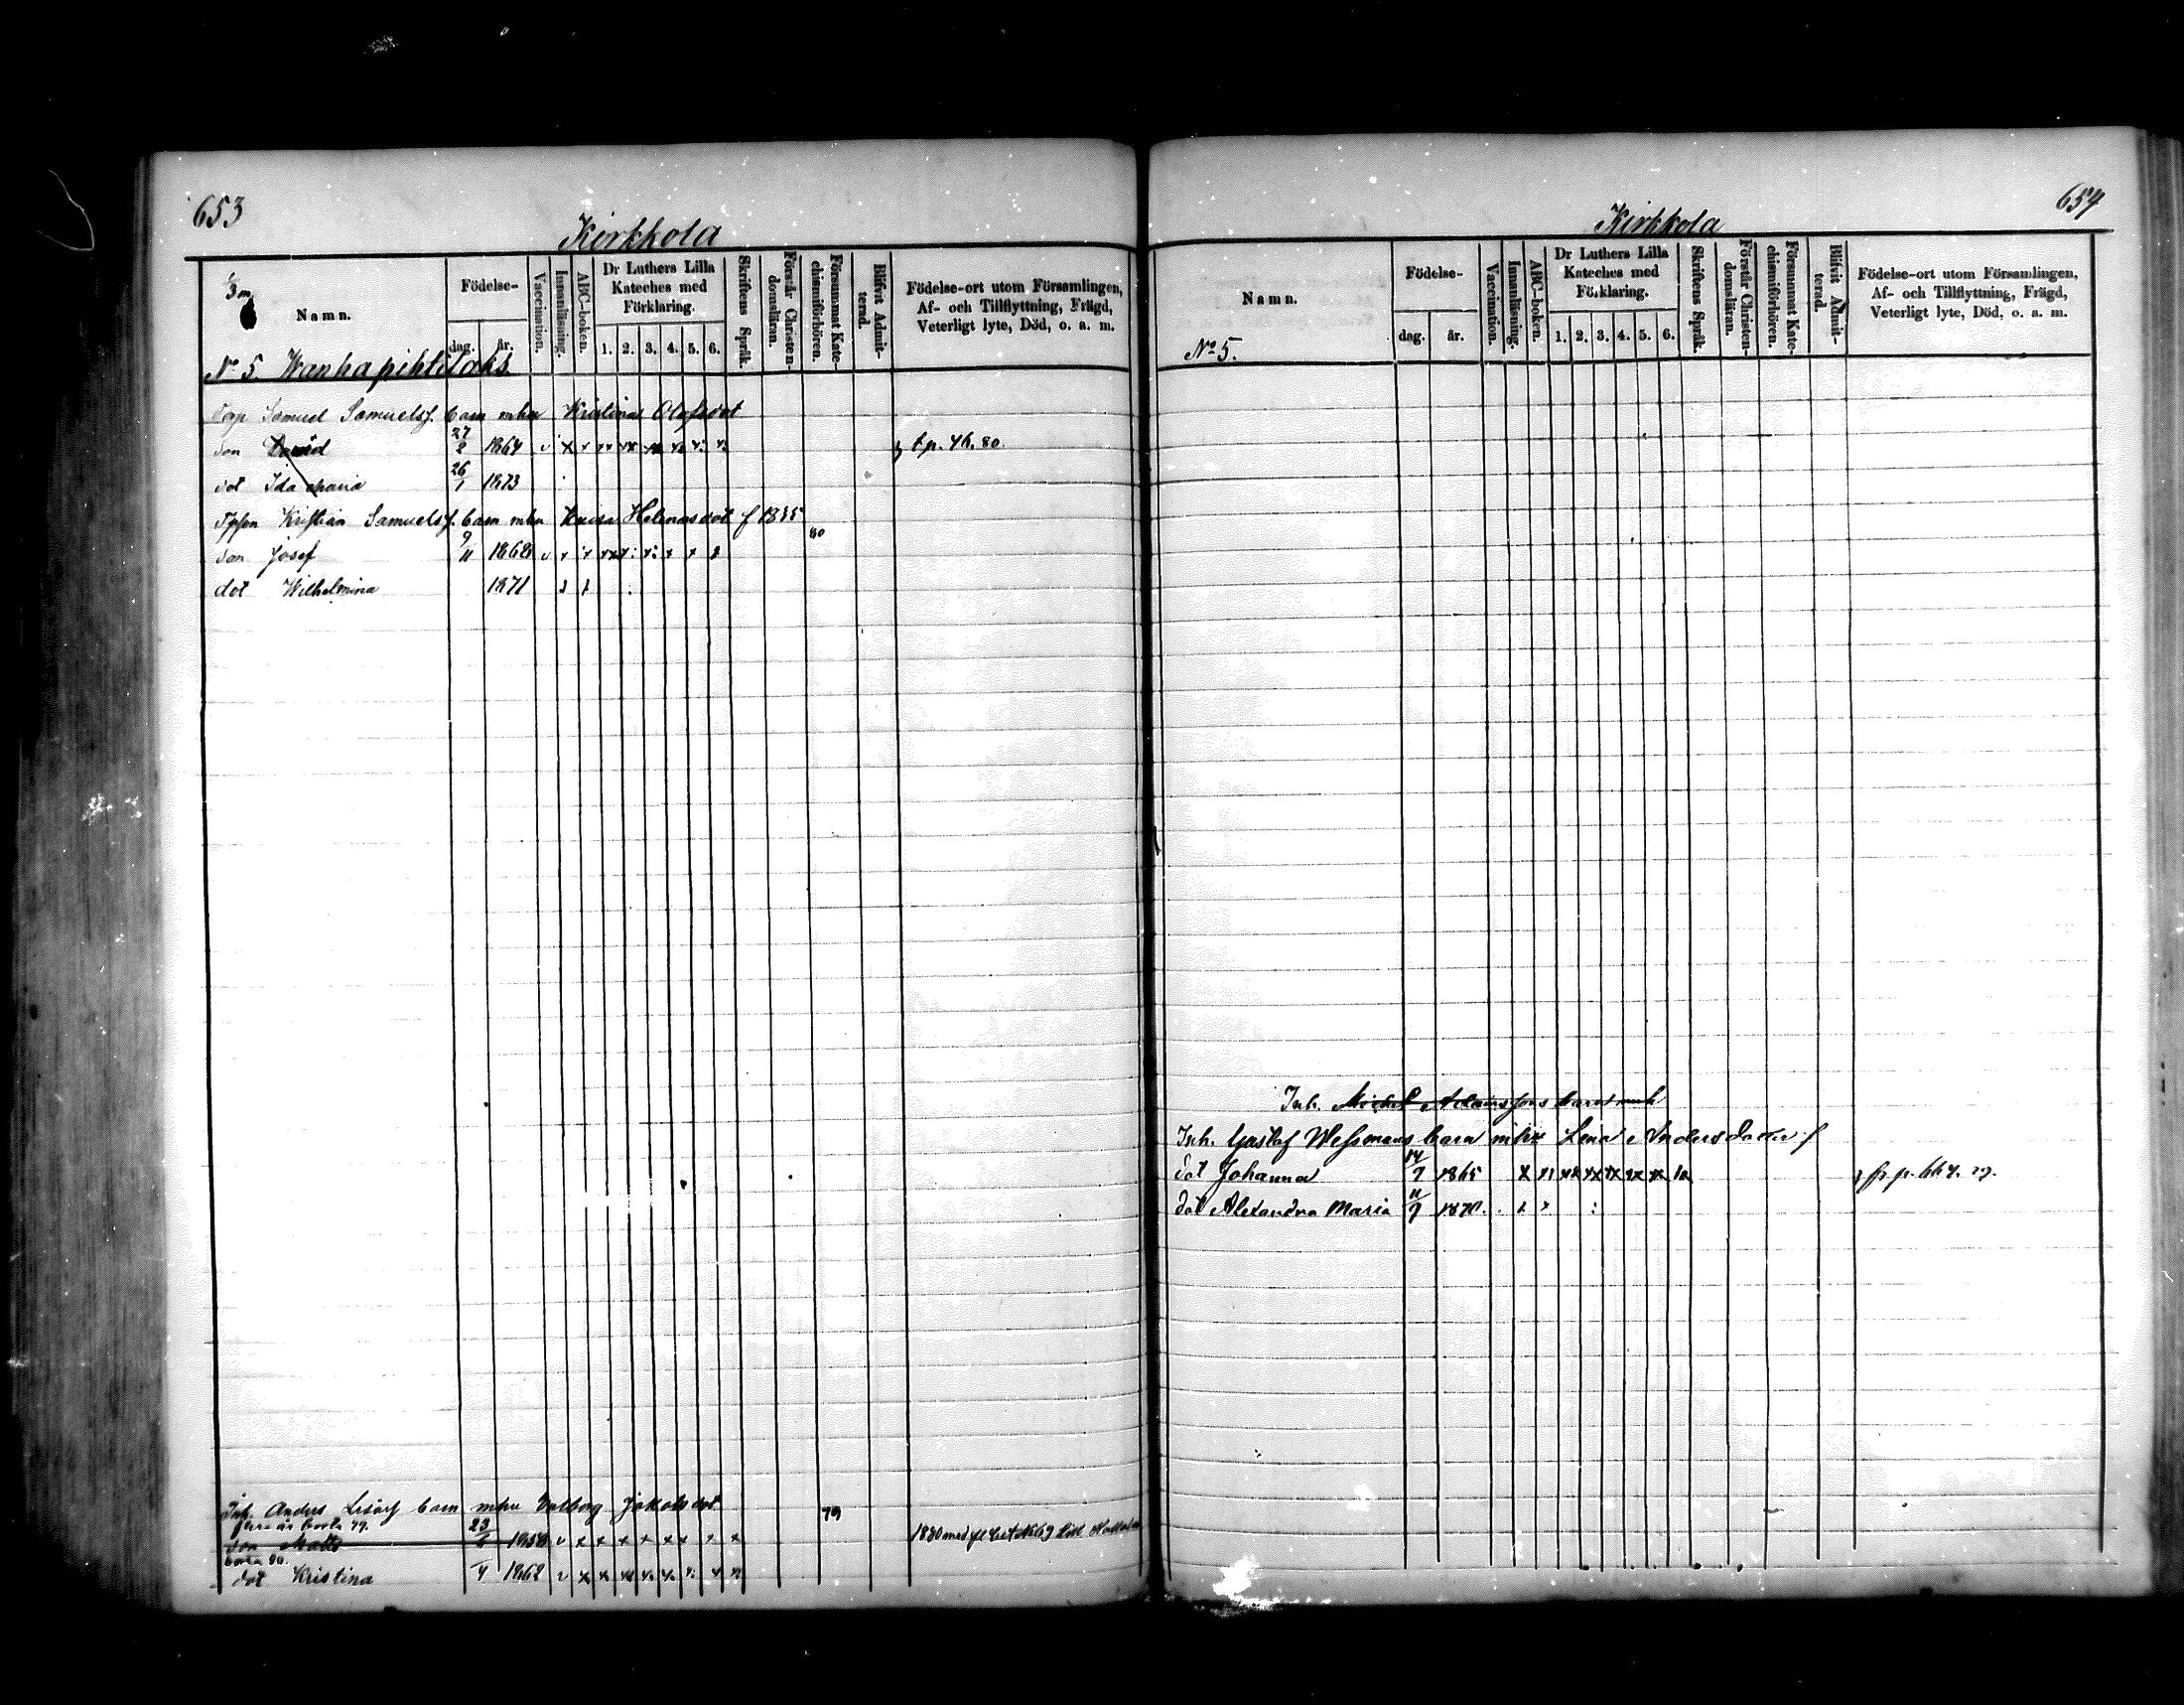 653
Kirkkola
Namn.
Födelse-
dag.
år.
Vaccination.
Innanläsning.
ABC-boken.
Dr Luthers Lilla
Kateches med
Förklaring.
1. 2. 3. 4. 5. 6.
Skriftens Språk.
Förstår Christen-
domsläran.
Försummat Kate-
chismiförhören.
Blifvit Admit-
terad.
Födelse-ort utom Församlingen,
Af- och Tillflyttning, Frägd,
Veterligt lyte, Död, o. a. m.
No 5. Wanhapihti
Samuel Samuelsf. barn mhu Kristina Olofsdot
son David 27/2 1864 tp. 76. 80.
dot Ida Maria 26/1 1873
Kristian Samuelsf. barn mhu Helenasdot f 1835
80
son Josef 9/11 1868
dot Wilhelmina 1871
Inh. Anders barn mhu Valborg Jakobsdot
79
borta 79.
son Matts 23 1858
borta 80.
dot Kristina 4 1862
654
Kirkkola
Namn.
Födelse-
dag. år.
Vaccination.
Innanläsning.
ABC-boken.
Dr Luthers Lilla
Kateches med
Förklaring.
1. 2. 3. 4. 5. 6.
Skriftens Språk.
Förstår Christen-
domsläran.
Försummat Kate-
chismiförhören.
Blifvit Admit-
terad.
Födelse-ort utom Församlingen,
Af- och Tillflyttning, Frägd,
Veterligt lyte, Död, o. a. m.
No 5.
Inh. Michel Adamsfons barn
Inh. Gustaf Wessmans barn mhu Lena Andersdotter f
dot Johanna 14/7 1865 fr p. 667. 79.
dot Alexandra Maria 11/7 1870.